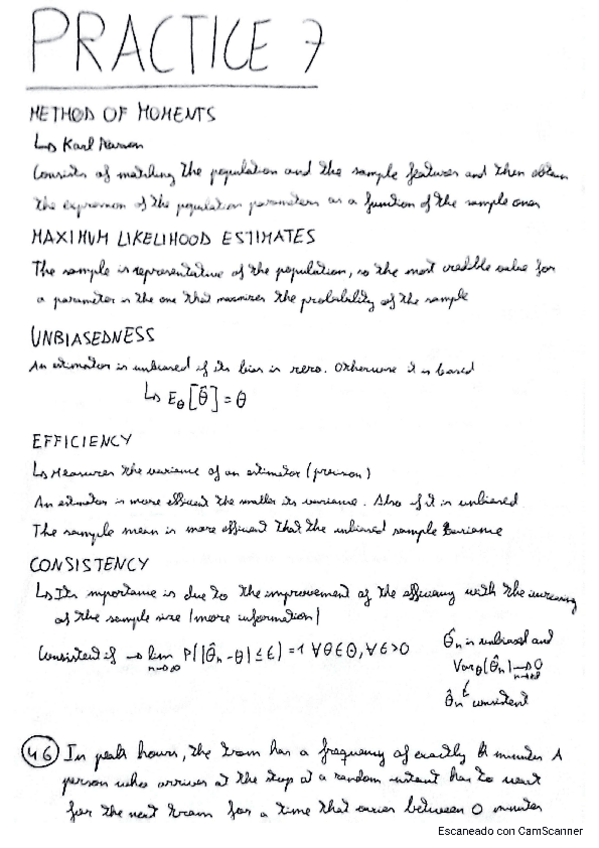 PRACTICE 7
METHOD OF MOMENTS
↳ Karl Pearson
Consists of matching the population and the sample features and then obtain
the expression of the population parameters as a function of the sample ones
MAXIMUM LIKELIHOOD ESTIMATES
The sample is representative of the population, so the most credible value for
a parameter is the one that maximizes the probability of the sample
UNBIASEDNESS
An estimator is unbiased if its bias is zero. Otherwise it is biased
↳ E_θ[θ̂] = θ
EFFICIENCY
↳ Measures the variance of an estimator (precision)
An estimator is more efficient the smaller its variance. Also if it is unbiased
The sample mean is more efficient that the unbiased sample variance
CONSISTENCY
↳ Its importance is due to the improvement of the efficiency with the increasing
of the sample size (more information)
Consistent if → lim n→∞ P(|θ̂n - θ| ≤ ε) = 1 ∀θ∈Θ, ∀ε>0
θ̂n is unbiased and
Var_θ(θ̂n) → 0 n→∞
θ̂n consistent
46 In peak hours, the tram has a frequency of exactly minutes A
person who arrives at the stop at a random instant has to wait
for the next tram for a time that varies between 0 minutes
Escaneado con CamScanner